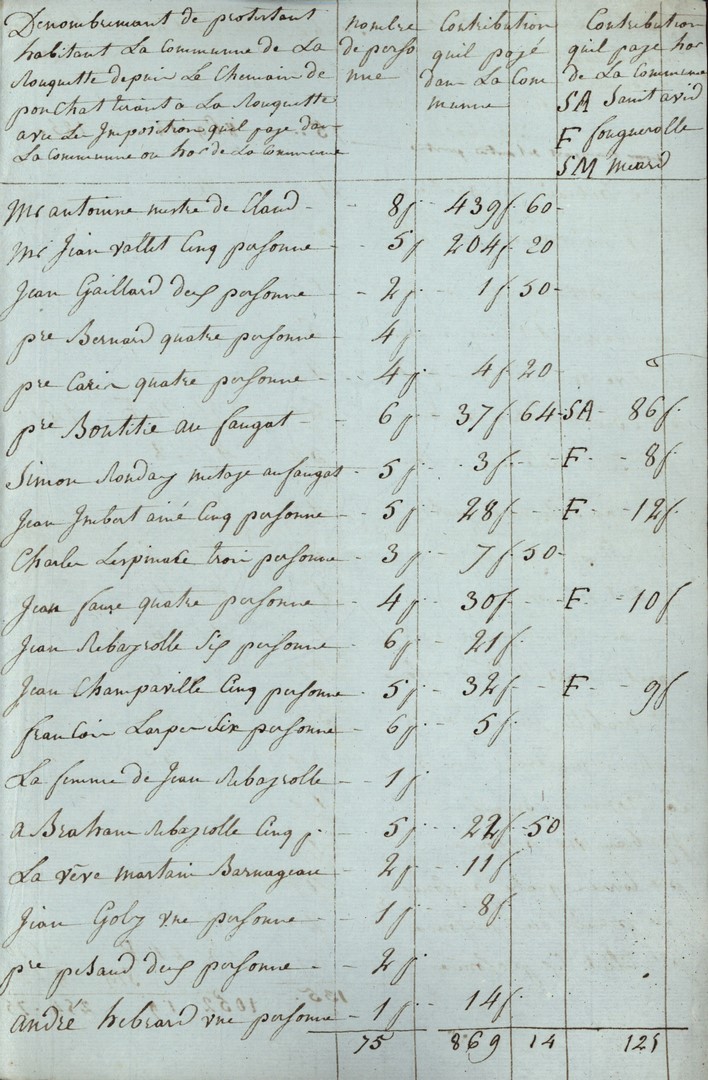 Denombremant de protestant
habitant La Commune de La
Rouquette depuis Le Chemain de
ponchat tirant a La Rouquette
avec Les Imposition quil paye dan
La Commune ou hor de La Commune
nombre
de perso
nne
Contribution
quil paye
dans La Com
munne
Contribution
quil paye hor
de La Commune
SA Sanit avid
F fougerolle
SM meard
Mr antoinne mestre de Claud - 8p - 439f 60
Mr Jean vallet Cinq personne - 5p - 204f 20
Jean Gaillard deux personne - 2p - 1f 50
pre Bernard quatre personne 4p
pre Carin quatre personne - 4p - 4f 20
pre Bontitie au faugat - 6p - 37f 64 - SA - 86f
Simon Rondey metaye au faugat 5p - 3f - F - 8f
Jean Imbert ainé Cinq personne - 5p - 28f - F - 12f
Charles Lespinasse troi personne - 3p - 7f 50
Jean faure quatre personne - 4p - 30f - F - 10f
Jean Rebayrolle Six personne - 6p - 21f
Jean Champaville Cinq personne - 5p - 32f - F - 9f
francoi Larper Six personne - 6p - 5f
La femme de Jean Rebayrolle - 1p
a Braham Rebayrolle Cinq p. - 5p - 22f 50
La vêve martain Barnageau - 2p - 11f
Jean Goby vne personne - 1p - 8f
pre pibaud deux personne - 2p
André hebrard vne personne - 1p - 14f
75 869 14 125